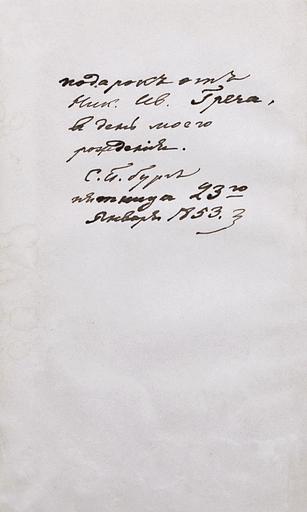 подарокъ отъ
Ник. Ив. Греча,
въ день моего
рожденія.
С. П. бургъ
пятница 23го
Января 1853.